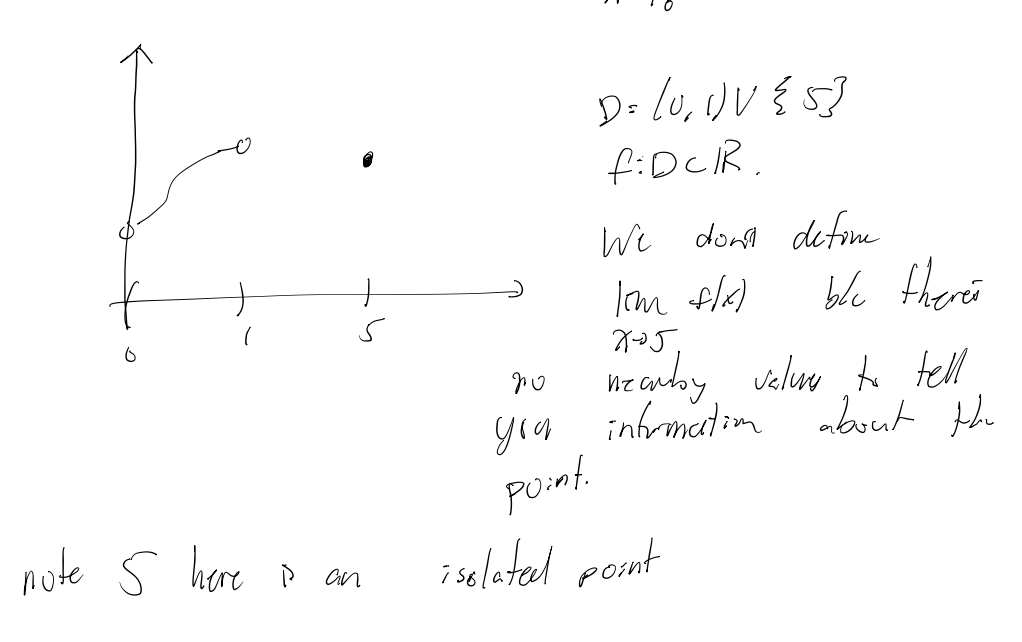 D = (0, 1) ∪ {5}
f: D ⊂ ℝ.
We don't define
lim f(x) b/c there's
x→5
no nearby values to tell
you information about the
point.
0 1 5
note 5 here is an isolated point